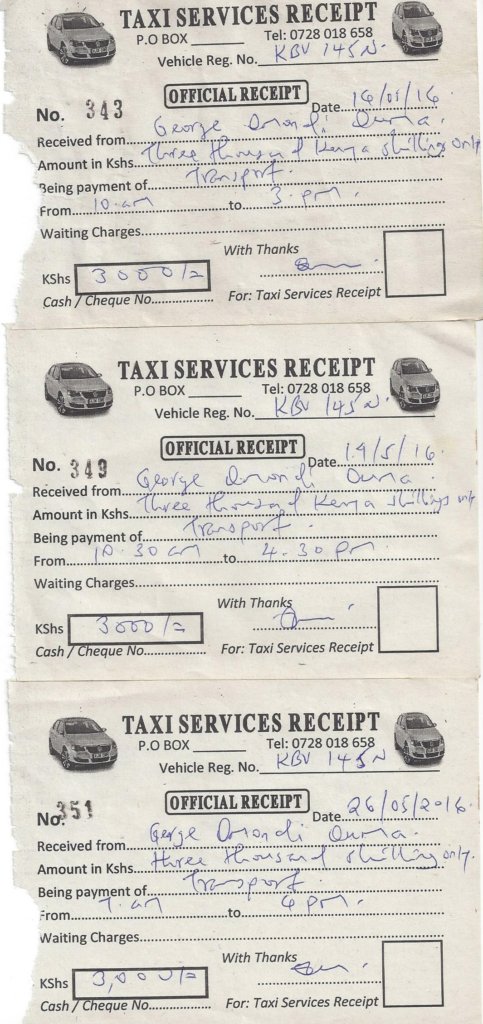 TAXI SERVICES RECEIPT
P.O BOX ______ Tel: 0728 018 658
Vehicle Reg. No. KBV 145N
OFFICIAL RECEIPT
No. 343 Date 16/05/16
Received from George Omondi Ouma
Amount in Kshs Three thousand Kenya shillings only
Being payment of Transport
From 10.am to 3.pm
Waiting Charges
With Thanks
KShs 3000/=
Cash / Cheque No. For: Taxi Services Receipt
TAXI SERVICES RECEIPT
P.O BOX ______ Tel: 0728 018 658
Vehicle Reg. No. KBV 145N
OFFICIAL RECEIPT
No. 349 Date 19/5/16
Received from George Omondi Ouma
Amount in Kshs Three thousand Kenya shillings only
Being payment of Transport
From 10.30am to 4.30pm
Waiting Charges
With Thanks
KShs 3000/=
Cash / Cheque No. For: Taxi Services Receipt
TAXI SERVICES RECEIPT
P.O BOX ______ Tel: 0728 018 658
Vehicle Reg. No. KBV 145N
OFFICIAL RECEIPT
No. 351 Date 26/05/2016
Received from Gerge Omondi Ouma
Amount in Kshs three thousand shilling only
Being payment of Transport
From 7.am to 6pm
Waiting Charges
With Thanks
KShs 3,000/=
Cash / Cheque No. For: Taxi Services Receipt